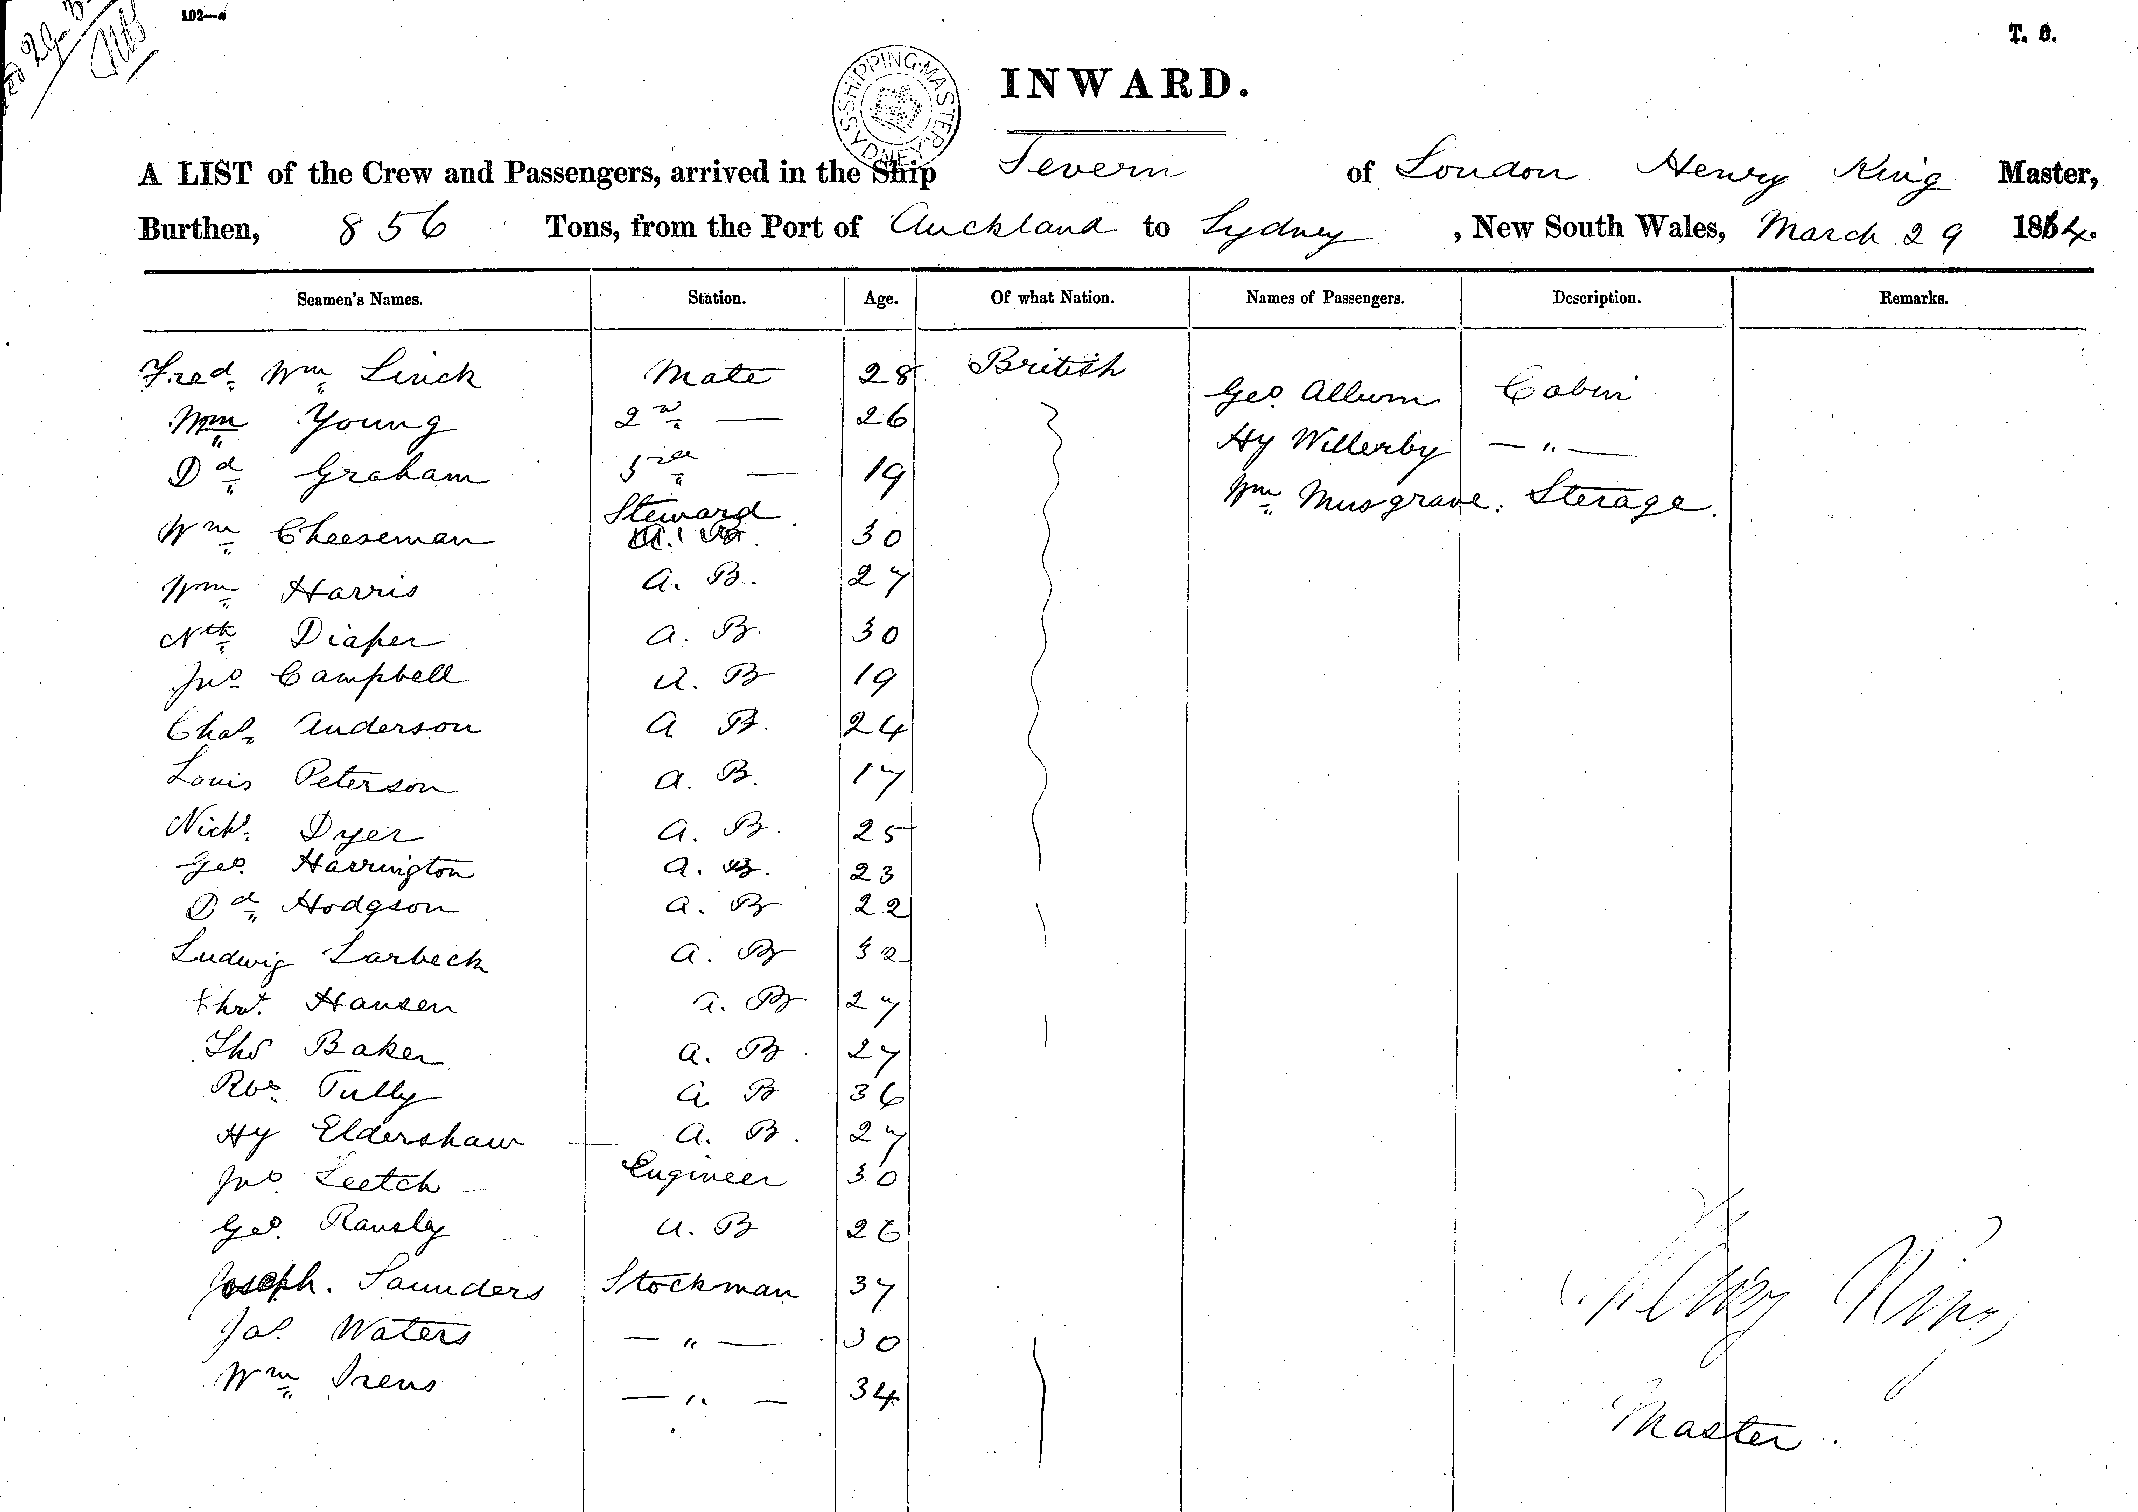 102—a
T. O.
SHIPPING MASTER SYDNEY
INWARD.
A LIST of the Crew and Passengers, arrived in the Ship Severn of London Henry King Master,
Burthen, 856 Tons, from the Port of Auckland to Sydney, New South Wales, March 29 1864.
Seamen's Names. Station. Age. Of what Nation. Names of Passengers. Description. Remarks.
Fred. Wm Linck Mate 28 British Geo. Album Cabin
Wm Young 2nd — 26 Hy Willerby — " —
Dd Graham 3rd — 19 Wm Musgrave. Sterage.
Wm Cheeseman Steward 30
Wm Harris A. B. 27
Nth Diaper A. B. 30
Jno Campbell A. B 19
Chas Anderson A B. 24
Louis Peterson A. B. 17
Nichs. Dyer A. B. 25
Geo. Harrington A. B. 23
Dd Hodgson A. B 22
Ludwig Larbeck A. B 32
Chrt. Hansen A. B 27
Thos Baker A. B. 27
Robt Tully A B 36
Hy Eldershaw A. B. 27
Jno. Leetch Engineer 30
Geo. Ransley A. B 26
Joseph. Saunders Stockman 37
Jas. Waters — " — 30
Wm Irens — " — 34
Henry King
Master.